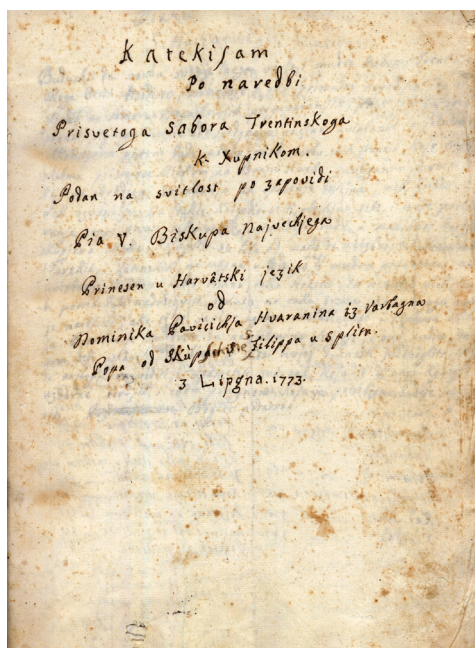 Katekisam
Po naredbi
Prisvetoga Sabora Trentinskoga
K. Xupnikom.
Podan na svitlost po zapovidi
Pia V. Biskupa Najvechjega
Prinesen u Harvätski jezik
od
Dominika Pavicichja Hvaranina iz Varbagna
Popa od Skupa Filippa u Splitu.
3 Lipgna. 1773.